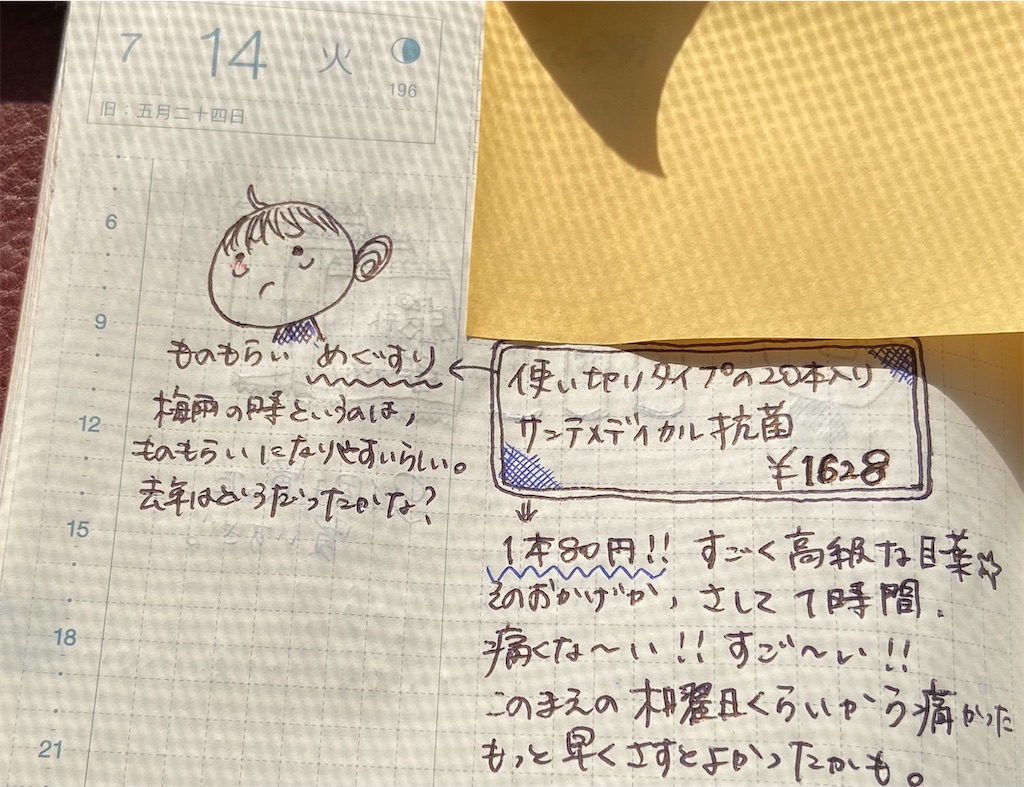 7 14 火
196
旧:五月二十四日
6
9
12
15
18
21
ものもらい めぐすり
梅雨の時というのは,
ものもらいになりやすいらしい。
去年はどうだったかな?
使い切りタイプの20本入り
サンテメディカル抗菌
¥1628
1本80円!! すごく高級な目薬
そのおかげか, さして1時間.
痛くな〜い!! すご〜い!!
このまえの木曜日くらいから痛かった
もっと早くさすとよかったかも。